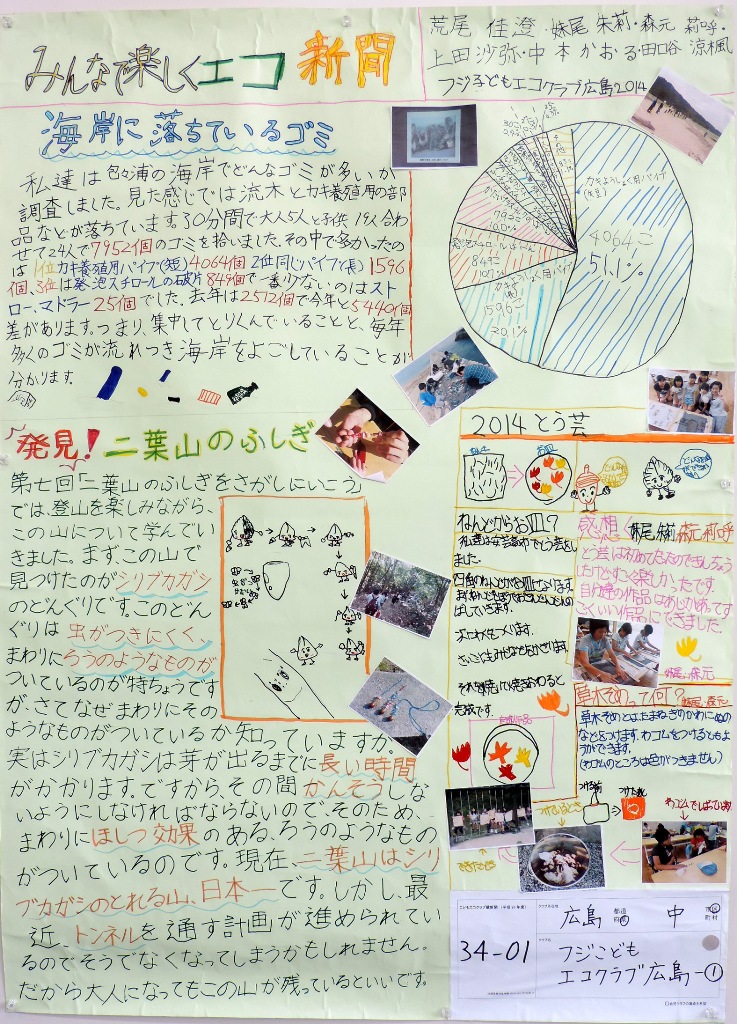 みんなで楽しくエコ 新聞
荒尾 佳澄・妹尾 朱莉・森元 莉呼・
上田 沙弥・中本 かおる・田口谷 涼楓
フジ子どもエコクラブ広島2014
海岸に落ちているゴミ
私達は包々浦の海岸でどんなゴミが多いか
調査しました。見た感じでは流木とカキ養殖用の部
品などが落ちています。30分間で大人5人と子供19人合わ
せて24人で7952個のゴミを拾いました。その中で多かったの
は1位カキ養殖用パイプ(短)4064個 2位同じパイプ(長)1596
個、3位は発泡スチロールの破片849個で一番少ないのはスト
ロー、マドラー25個でした。去年は2512個で今年と5440個
差があります。つまり、集中してとりくんでいることと、毎年
多くのゴミが流れつき海岸をよごしていることが
分かります。
4064こ
51.1%
1596こ
20.1%
849こ
10.7%
発見!二葉山のふしぎ
第七回「二葉山のふしぎをさがしにいこう」
では、登山を楽しみながら、
この山について学んでい
きました。まずこの山で
見つけたのがシリブカガシ
のどんぐりです。このどん
ぐりは虫がつきにくく、
まわりにろうのようなものが
ついているのが特ちょうです
が、さてなぜまわりにその
ようなものがついているか知っていますか。
実はシリブカガシは芽が出るまでに長い時間
がかかります。ですから、その間かんそうしな
いようにしなければならないので、そのため、
まわりにほしつ効果のある、ろうのようなもの
がついているのです。現在、二葉山はシリ
ブカガシのとれる山、日本一です。しかし、最
近、トンネルを通す計画が進められてい
るのでそうでなくなってしまうかもしれません。
だから大人になってもこの山が残っているといいです。
2014とう芸
ねんどからお皿?
次にわくをつくります。
それを焼いて焼きおわると
完成です。
感想 妹尾 朱莉 森元 莉呼
とう芸は初めてだったのできんちょう
したけどすごく楽しかったです。
自分達の作品はあじがあってす
ごくいい作品にできました。
妹尾、森元
草木ぞめって何? 妹尾、森元
草木ぞめとは、たまねぎのかわにぬの
などをつけます。わゴムをつけるともよ
うができます。
(わゴムのところは色がつきません)
つける前
つけた後
つけているとき
わゴムでしばっている
できたさくひん
34-01
広島 県 中 区
フジこども
エコクラブ広島-①